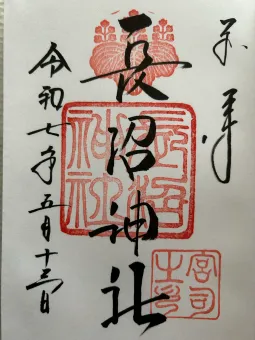 奉拝
長沼神社
令和七年五月十三日
長沼神社
宮司之印